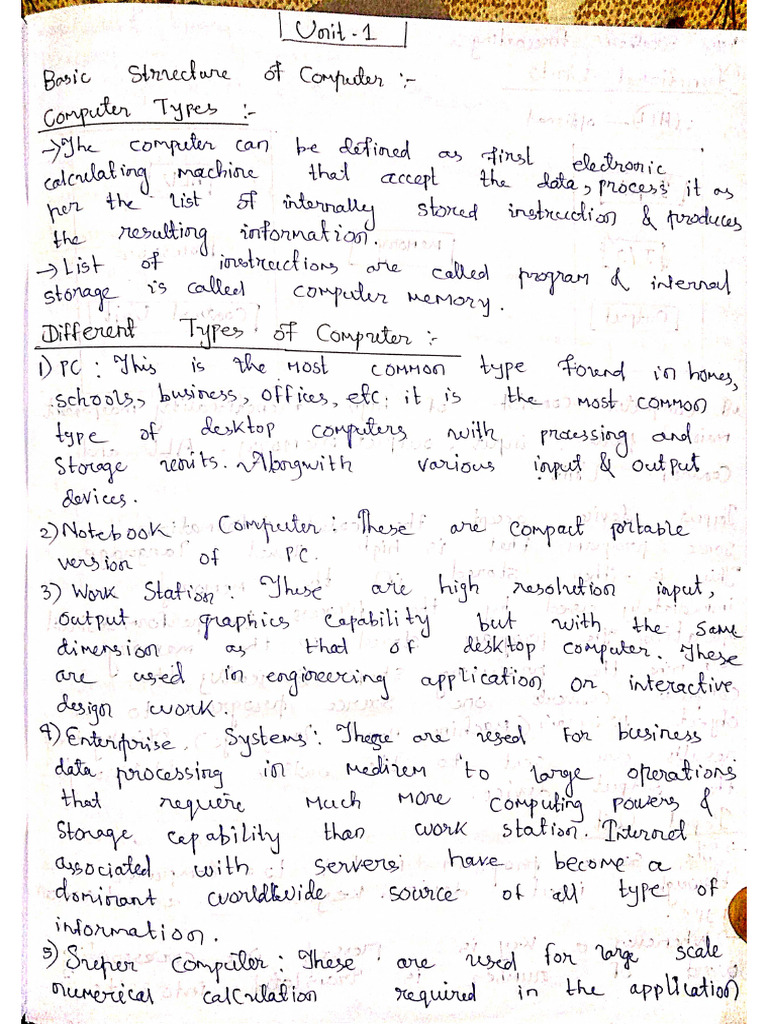 Unit-1
Basic Structure of Computer :-
Computer Types :-
→ The computer can be defined as first electronic
calculating machine that accept the data, process it as
per the list of internally stored instruction & produces
the resulting information.
→ List of instructions are called program & internal
storage is called computer memory.
Different Types of Computer :-
1) PC : This is the most common type found in homes,
schools, business, offices, etc. it is the most common
type of desktop computers with processing and
storage units. Alongwith various input & output
devices.
2) Notebook Computer : These are compact portable
version of PC.
3) Work Station : These are high resolution input,
output graphics capability but with the same
dimension as that of desktop computer. These
are used in engineering application or interactive
design work.
4) Enterprise Systems : These are used for business
data processing in medium to large operations
that require much more computing powers &
storage capability than work station. Internet
associated with servers have become a
dominant worldwide source of all type of
information.
5) Super Computer : These are used for large scale
numerical calculation required in the application